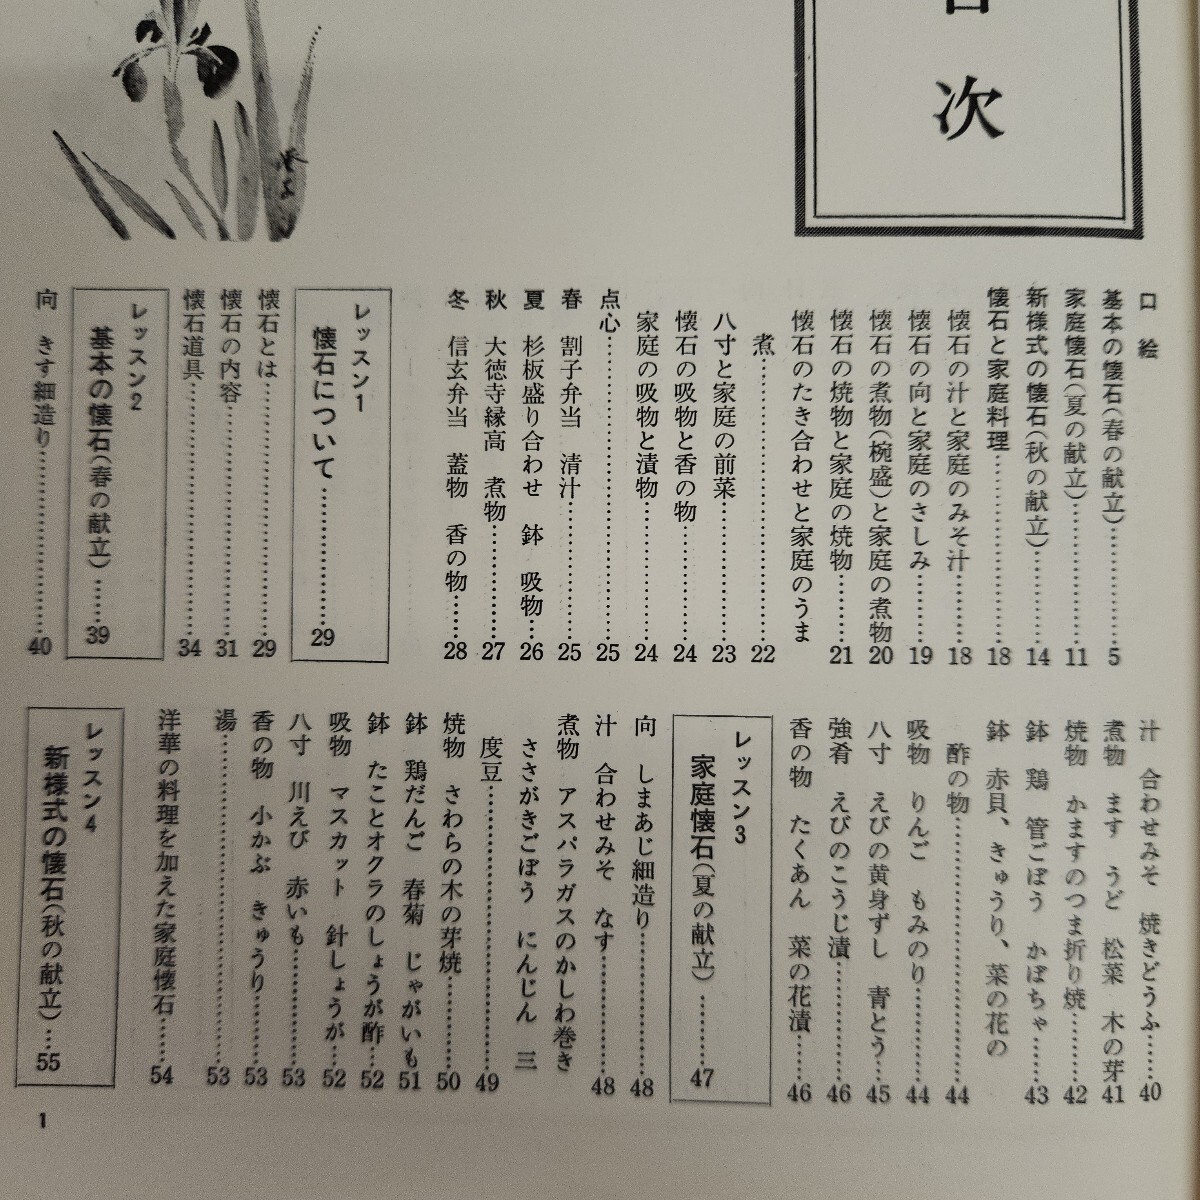 次
口絵
基本の懐石（春の献立）……………5
家庭懐石（夏の献立）……………11
新様式の懐石（秋の献立）…………14
懐石と家庭料理……………………18
懐石の汁と家庭のみそ汁…………18
懐石の向と家庭のさしみ…………19
懐石の煮物（椀盛）と家庭の煮物 20
懐石の焼物と家庭の焼物…………21
懐石のたき合わせと家庭のうま
煮……………………………………22
八寸と家庭の前菜…………………23
懐石の吸物と香の物………………24
家庭の吸物と漬物…………………24
点心…………………………………25
春 割子弁当 清汁…………………25
夏 杉板盛り合わせ 鉢 吸物……26
秋 大徳寺縁高 煮物………………27
冬 信玄弁当 蓋物 香の物………28
レッスン1
懐石について………………………29
懐石とは……………………………29
懐石の内容…………………………31
懐石道具……………………………34
レッスン2
基本の懐石（春の献立）……39
向 きす細造り……………………40
汁 合わせみそ 焼きどうふ……40
煮物 ます うど 松菜 木の芽 41
焼物 かますのつま折り焼………42
鉢 鶏 管ごぼう かぼちゃ……43
鉢 赤貝、きゅうり、菜の花の
酢の物………………………………44
吸物 りんご もみのり…………44
八寸 えびの黄身ずし 青とう…45
強肴 えびのこうじ漬……………46
香の物 たくあん 菜の花漬……46
レッスン3
家庭懐石（夏の献立）…………47
向 しまあじ細造り………………48
汁 合わせみそ なす……………48
煮物 アスパラガスのかしわ巻き
ささがきごぼう にんじん 三
度豆…………………………………49
焼物 さわらの木の芽焼…………50
鉢 鶏だんご 春菊 じゃがいも 51
鉢 たことオクラのしょうが酢…52
吸物 マスカット 針しょうが…52
八寸 川えび 赤いも……………53
香の物 小かぶ きゅうり………53
湯……………………………………53
洋華の料理を加えた家庭懐石……54
レッスン4
新様式の懐石（秋の献立）…55
1